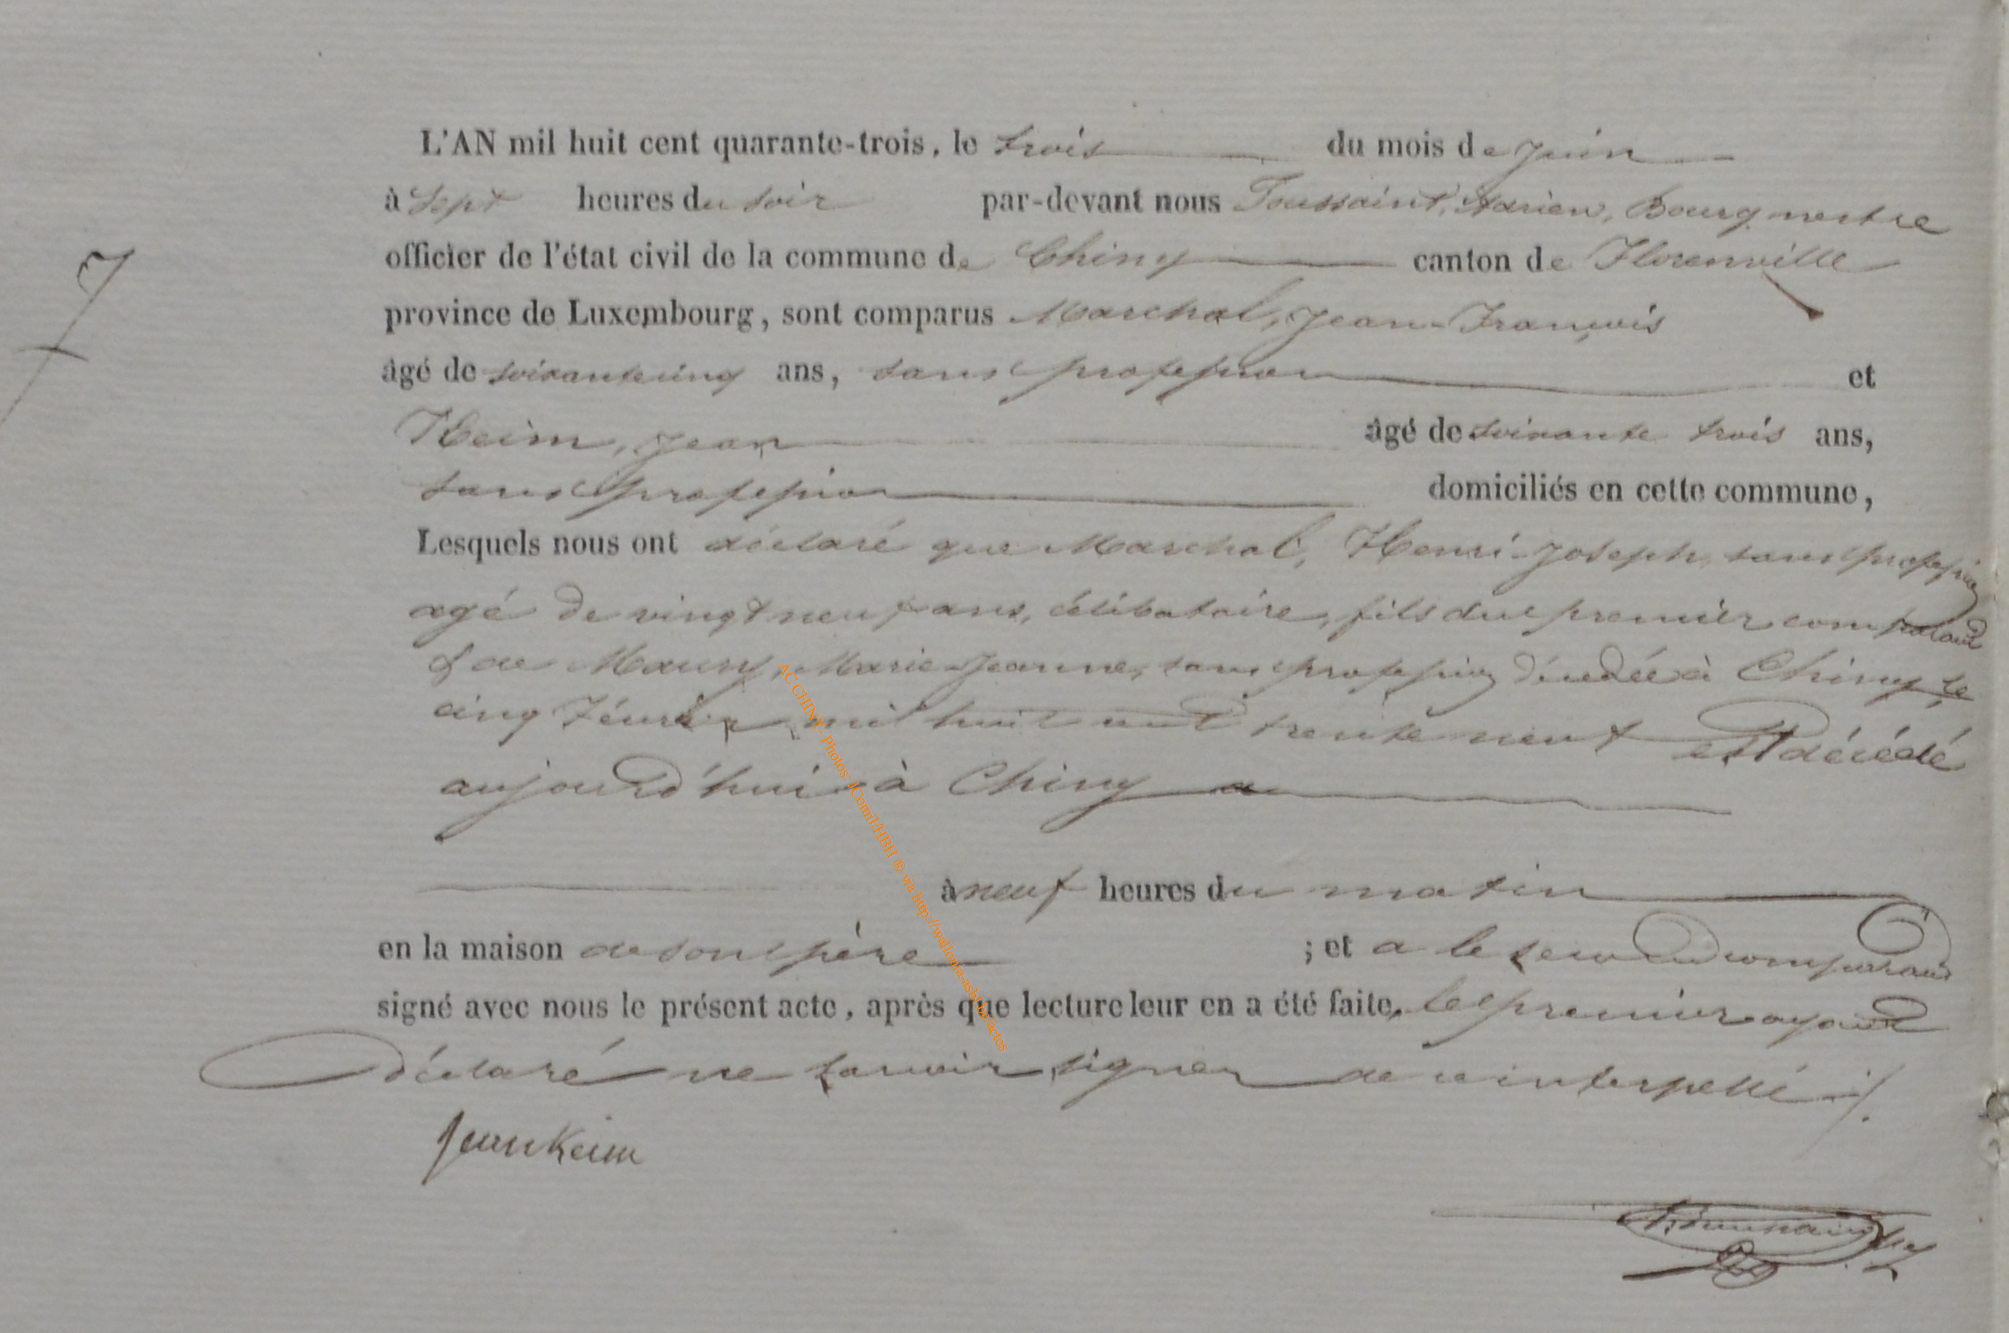 L'AN mil huit cent quarante-trois, le trois du mois de juin
à Sept heures du soir par-devant nous Toussaint, Adrien, Bourgmestre
officier de l'état civil de la commune de Chiny canton de Florenville
7
province de Luxembourg, sont comparus Marchal, Jean-François
âgé de soixante cinq ans, sans profession et
Keim, Jean âgé de soixante trois ans,
sans profession domiciliés en cette commune,
Lesquels nous ont déclaré que Marchal, Henri-Joseph, sans profession
agé de vingt neuf ans, célibataire, fils du premier comparant
& de Maury, Marie-Jeanne, sans profession décédée à Chiny le
cinq février mil huit cent trente neuf est décédé
aujourd'hui à Chiny
à neuf heures du matin
en la maison de son père ; et a le second comparant
signé avec nous le présent acte, après que lecture leur en a été faite, le premier ayant
déclaré ne savoir signer de ce interpellé ./.
Jean Keim
AC CHINY - Photos